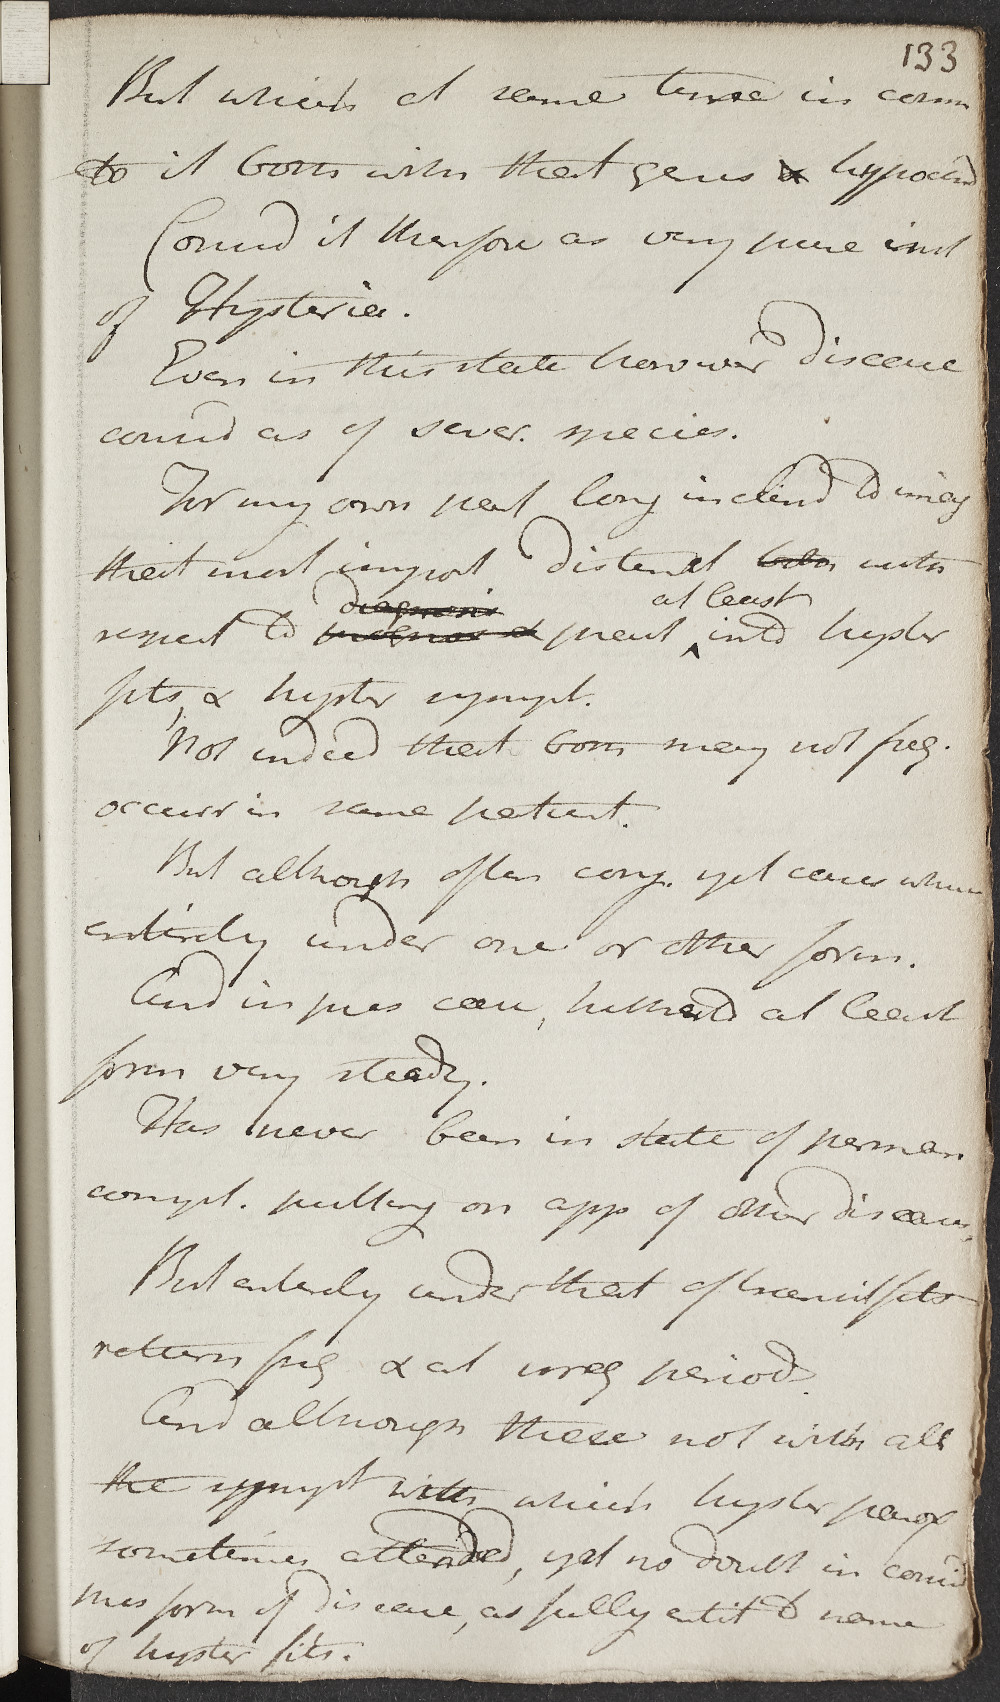 133
But which at same time in comm
to it both with that genus & hypochond
Consid it therefore as very pure inst
of Hysteria.
Even in this state however disease
consid as of sever. species.
For my own part long inclind to imag
that most import distinct both with
diagnosis at least
respect to prognos & treat into hyster
fits, & hyster sympt.
Not indeed that both may not freq.
occurr in same patient.
But although often conj. yet cases where
entirely under one or other form.
And in pres case, hitherto at least
form very steady.
Has never been in state of perman
compt. putting on app of other diseases,
But entirely under that of transit fits
return freq & at irreg periods.
And although these not with all
the sympt with which hyster parox
sometimes attended, yet no doubt in consid
this form of disease, as fully entit to name
of hyster fits.